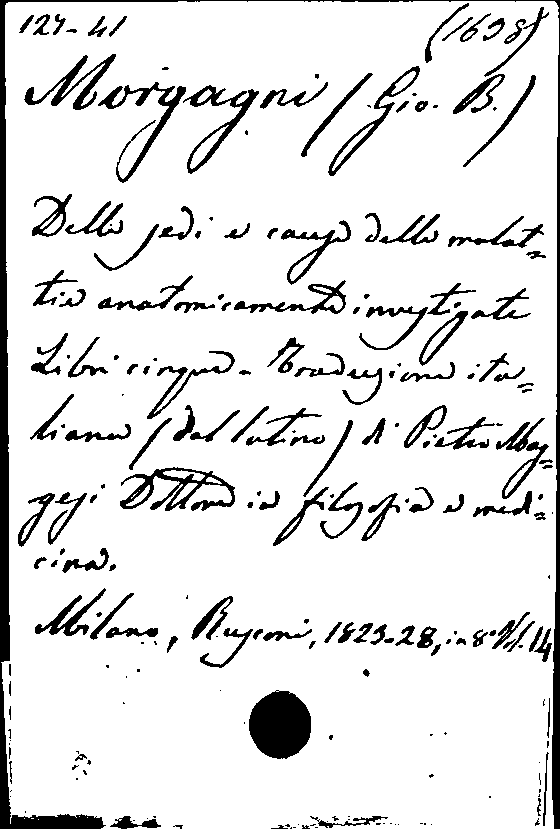 127-41 (1698)
Morgagni (Gio. B.)
Delle sedi e cause delle malat=
tie anatomicamente investigate
Libri cinque. Traduzione ita=
liana (dal latino) di Pietro Mag=
gesi Dottore in filosofia e medi=
cina.
Milano, Rusconi, 1823-28, in 8° Vol. 14